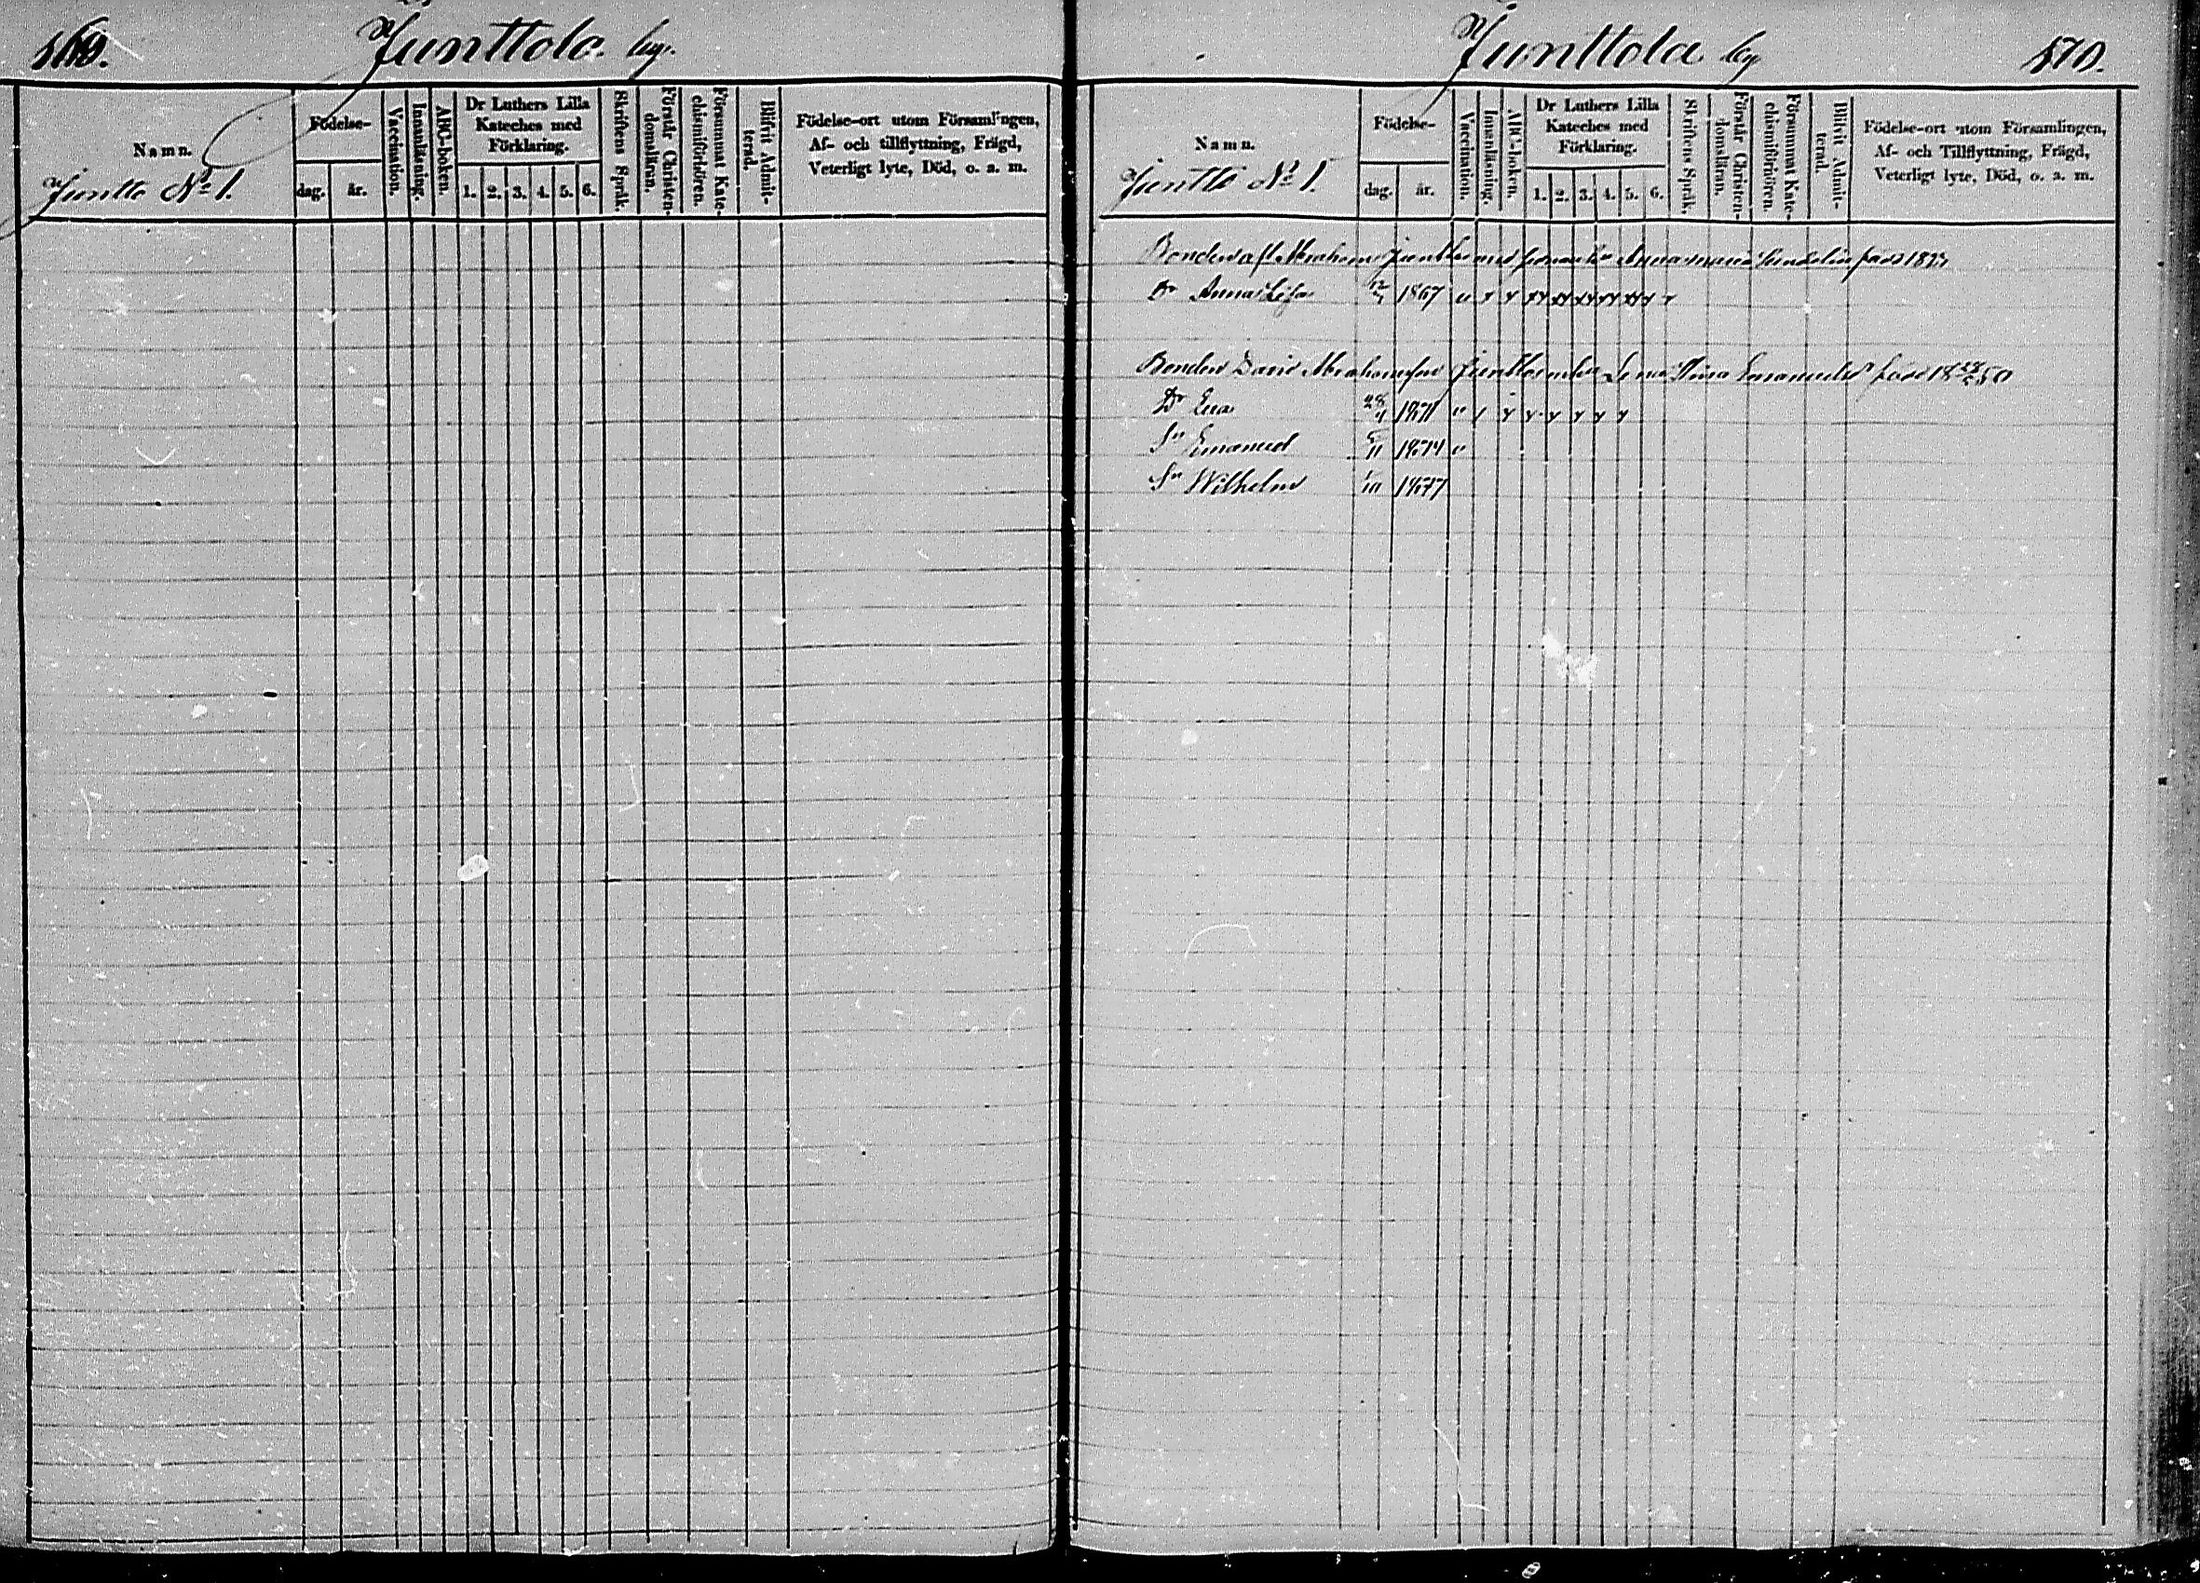 569.
Junttola by.
Namn.
Juntto No 1.
Födelse-
dag.
år.
Vaccination.
Innanläsning.
ABC-boken.
Dr Luthers Lilla
Kateches med
Förklaring.
1. 2. 3. 4. 5. 6.
Skriftens Språk.
Förstår Christen-
domsläran.
Försummat Kate-
chismiförhören.
Blifvit Admit-
terad.
Födelse-ort utom Församlingen,
Af- och tillflyttning, Frägd,
Veterligt lyte, Död, o. a. m.
Junttola by
570.
Namn.
Juntto No 1.
Födelse-
dag.
år.
Vaccination.
Innanläsning.
ABC-boken.
Dr Luthers Lilla
Kateches med
Förklaring.
1. 2. 3. 4. 5. 6.
Skriftens Språk.
Förstår Christen-
domsläran.
Försummat Kate-
chismiförhören.
Blifvit Admit-
terad.
Födelse-ort utom Församlingen,
Af- och Tillflyttning, Frägd,
Veterligt lyte, Död, o. a. m.
Bonden Abraham Juntto med Anna Maria född
Dr Anna Lisa 1867
Bonden David Abrahamsson Juntto Lena Stina Emanuelsdr född
Dr Eva 28/4 1871
Sn Emanuel 5/11 1874
Sn Wilhelm 1/10 1877